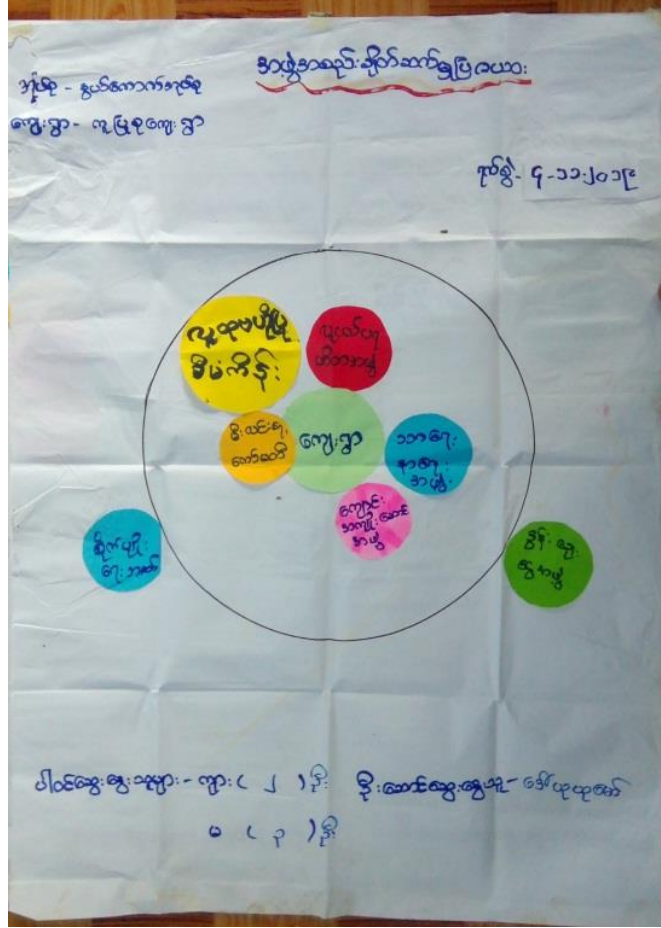 အဖွဲ့အစည်းချိတ်ဆက်မှုပြဇယား
အုပ်စု - နွယ်ကောက်အုပ်စု
ကျေးရွာ - ကူပြုစုကျေးရွာ
ရက်စွဲ - ၄-၁၁-၂၀၁၉
လူထုဗဟိုပြု
စီမံကိန်း
လူငယ်ပရ
ဟိတအဖွဲ့
မီးလင်းရေး
ကော်မတီ
ကျေးရွာ
သာရေး
နာရေး
အဖွဲ့
ကျောင်း
အကျိုးဆောင်
အဖွဲ့
စိုက်ပျိုး
ရေးဘဏ်
စိမ်းရွှေ
ဝါအဖွဲ့
ပါဝင်ဆွေးနွေးသူများ - ကျား ( ၂ ) ဦး
မ ( ၃ ) ဦး
ဦးဆောင်ဆွေးနွေးသူ - ဒေါ်ယုယုမော်